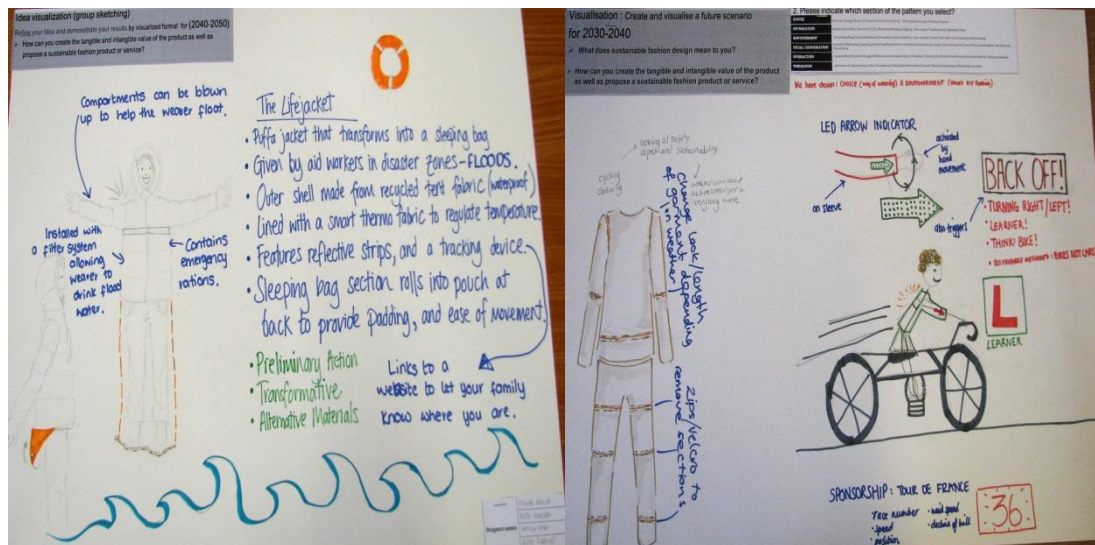 Idea visualization (group sketching)
Refine your idea and demonstrate your results by visualized format. for (2040-2050)
➤ How can you create the tangible and intangible value of the product as well as
propose a sustainable fashion product or service?
Compartments can be blown
up to help the wearer float.
The Lifejacket
• Puffa jacket that transforms into a sleeping bag
• Given by aid workers in disaster zones - FLOODS.
• Outer shell made from recycled tent fabric (waterproof)
• Lined with a smart thermo fabric to regulate temperature.
• Features reflective strips, and a tracking device.
• Sleeping bag section rolls into pouch at
back to provide padding, and ease of movement.
Installed with
a filter system
allowing
wearer to
drink flood
water.
Contains
emergency
rations.
• Preliminary Action
• Transformative
• Alternative Materials
Links to a
website to let your family
know where you are.
Visualisation : Create and visualise a future scenario
for 2030-2040
➤ What does sustainable fashion design mean to you?
➤ How can you create the tangible and intangible value of the product
as well as propose a sustainable fashion product or service?
2. Please indicate which section of the pattern you select?
CHOICE
OPTIMISATION
EMPOWERMENT
SOCIAL CONVERSATION
INTERACTION
We have chosen : CHOICE (way of wearing) & EMPOWERMENT
looking at safety
aspect and sustainability
cycling
clothing
change look/length
of garment depending
on weather
Zips/velcro to
remove sections
LED ARROW INDICATOR
on sleeve
activated
by
hand
movement
also triggers
BACK OFF!
• TURNING RIGHT/LEFT!
• LEARNER!
• THINK! BIKE!
• ECO FRIENDLY MESSAGES : BIKES NOT CARS
L
LEARNER
SPONSORSHIP : TOUR DE FRANCE
• race number
• speed
• position
• wind speed
• decline of hill
36